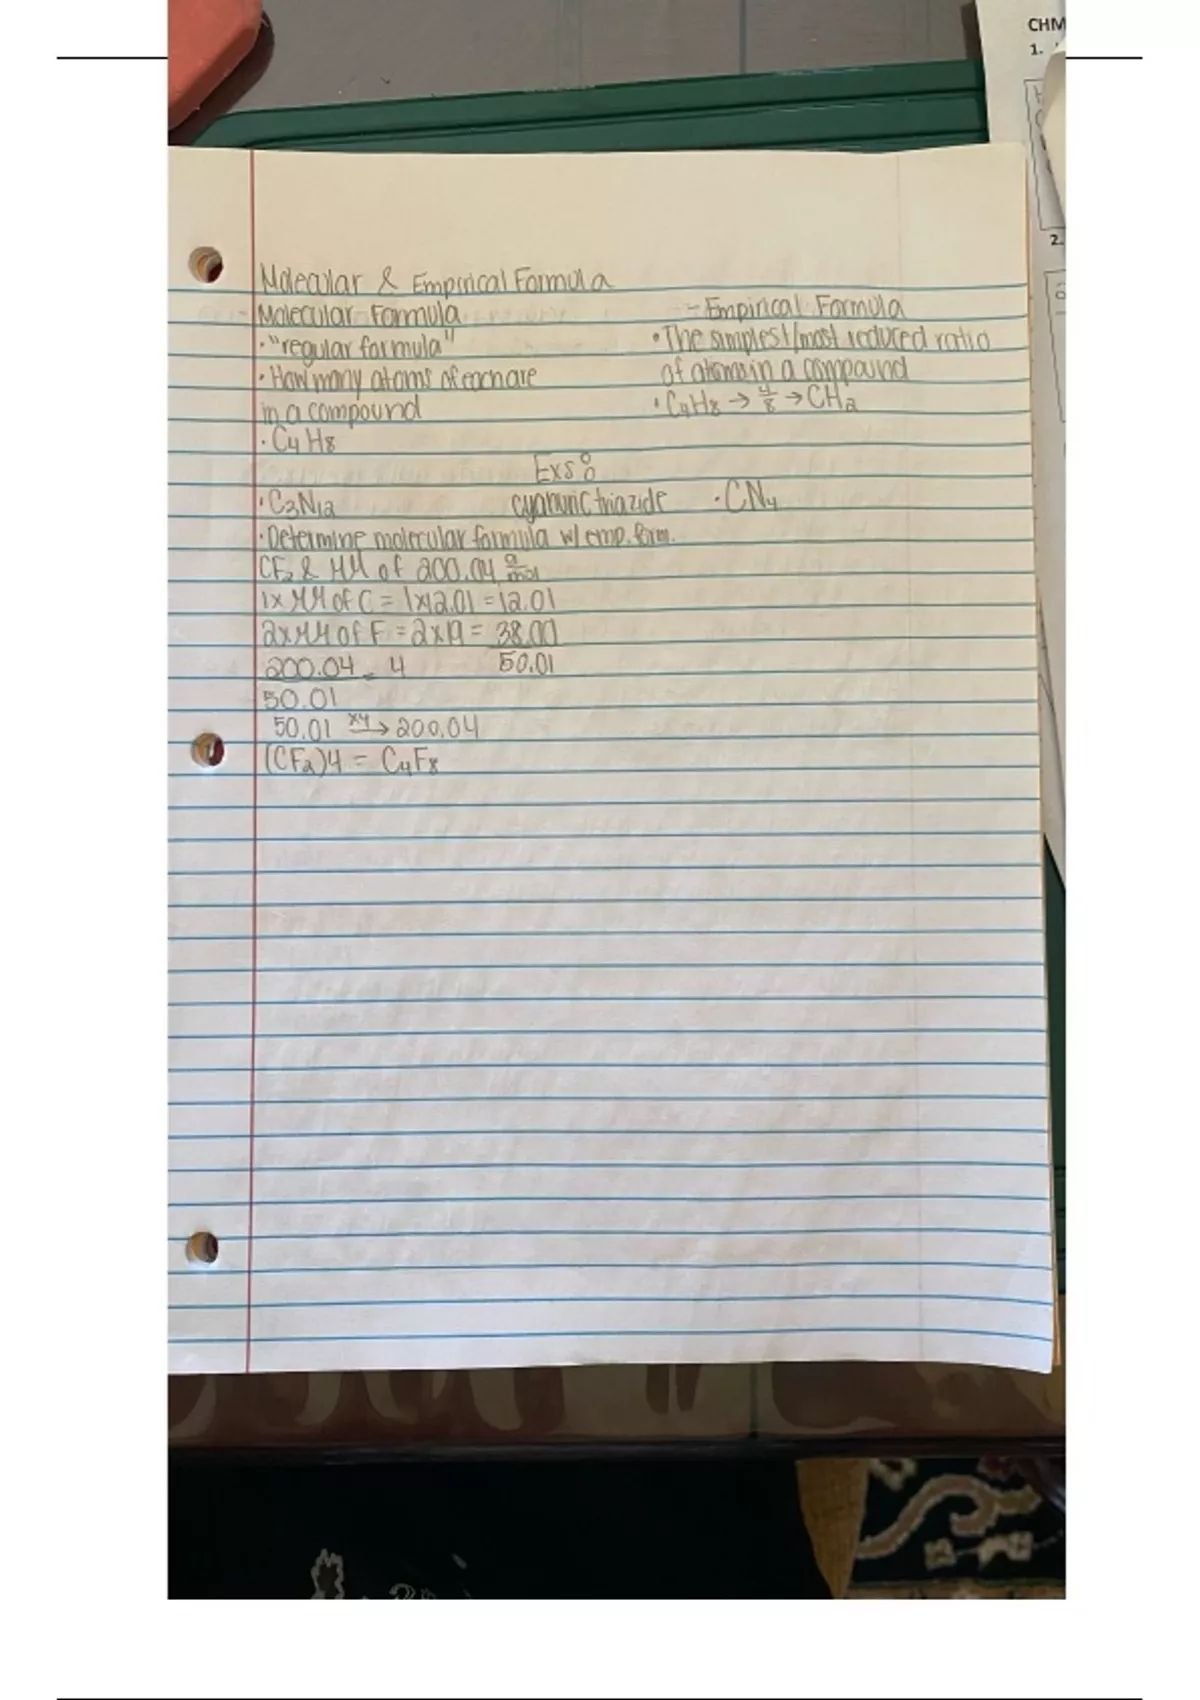 CHM
1.
2.
Molecular & Empirical Formula
Molecular Formula
- Empirical Formula
• "regular formula"
• The simplest/most reduced ratio
• How many atoms of each are
of atoms in a compound
in a compound
• C₄H₈ → 4/8 → CH₂
• C₄H₈
Exs:
• C₃N₁₂ cyanuric triazide • CN₄
• Determine molecular formula w/ emp. form.
CF₂ & MM of 200.04 g/mol
1x MM of C = 1x12.01 = 12.01
2x MM of F = 2x19 = 38.00
200.04 = 4 50.01
50.01
50.01 x4→ 200.04
(CF₂)4 = C₄F₈